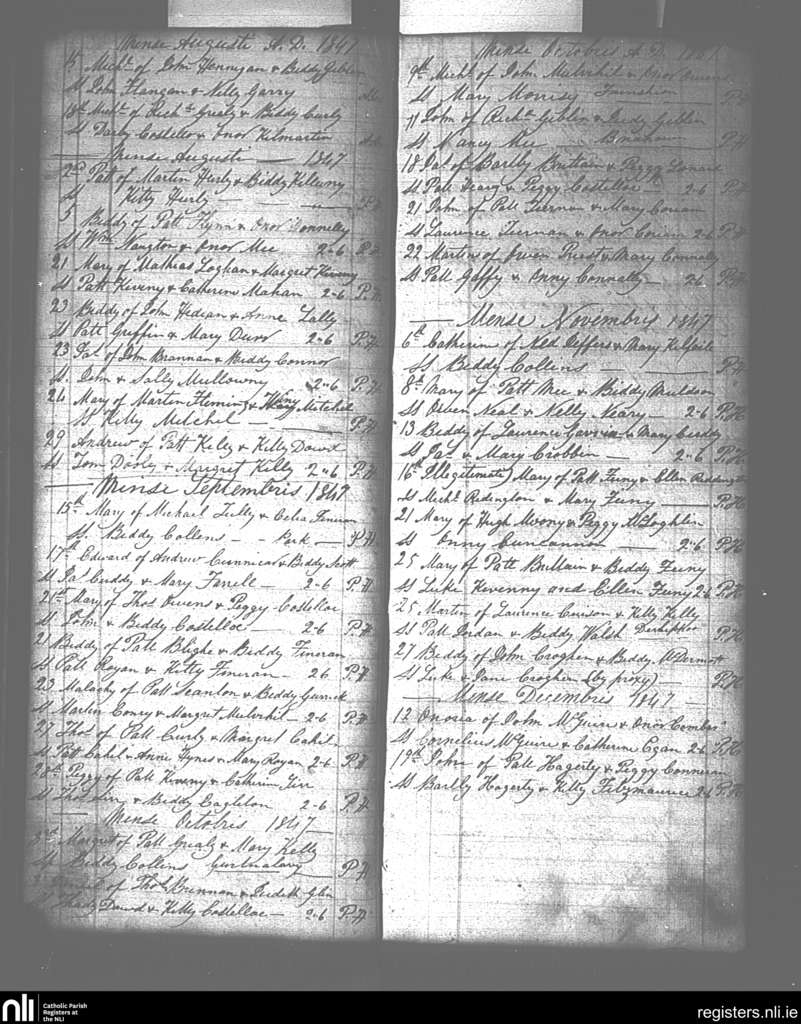 Mense Augusti A.D. 1847
15 Michl. of John Hennigan & Biddy Giblin
St John Flangan & Nelly Garry
18th Michl. of Richd. Grealy & Biddy Curly
St Darby Costello & Onor Kilmartin
Mense Augusti 1847
2nd Patt of Martin Hurly & Biddy Kilcuny
St Kitty Hurly
5 Biddy of Patt Flynn & Onor Donnelly
St Wm. Naugton & Onor Mee 2-6 P.H
21 Mary of Mathias Loghan & Margret Keveny
St Patt Keveny & Catherine Mahan 2-6 P.H.
23 Biddy of John Hedian & Anne Lally
St Patt Griffin & Mary Durr 2-6 P.H
23 Jas. of John Brannan & Biddy Connor
St. John & Sally Mullowny 2-6 P.H
26 Mary of Martin Fleming & Mitchel
St Kitty Mitchel P.H
29 Andrew of Patt Kelly & Kitty Dowd
St Tom Dooly & Margret Kelly 2-6 P.H
Mense Septembris 1847
15th Mary of Michael Tully & Celia Fineran
St. Biddy Collens - - Park - P.H
17th Edward of Andrew & Biddy Scott
St Jas. Cuddy & Mary Farrell 2-6 P.H.
21st Mary of Thos. Owens & Peggy Costelloe
St John & Biddy Costelloe 2-6 P.H.
21 Biddy of Patt Blighe & Biddy Fineran
St Patt Royan & Kitty Fineran 2 6 P.H
23 Malachy of Patt Scanlon & Biddy
St Martin Coney & Margret Mulvihil 2-6 P.H.
27 Thos of Patt Curly & Margret Cahil
St Patt Cahil & Annie Hynes & Mary Royan 2-6 P.H
28th Peggy of Patt Keveny & Catherine
St Thos. & Biddy Eagleton 2-6 P.H
Mense Octobris 1847
3rd Margret of Patt Grealy & Mary Kelly
St Biddy Collins P.H
of Thos. Brennan & Glin
Thady Dowd & Kitty Costelloe 2-6 P.H
Mense Octobris A.D. 1847
9th Michl. of John Mulvihil & Onor Owens
St Mary Morrisy P.H
11 John of Richd. Giblin & Judy Giblin
St Nancy Mee P.H
18 Pat of Bartly Brittain & Peggy Lenard
St Patt Geary & Peggy Costelloe 2-6 P.H
21 John of Patt Tiernan & Mary Couran
St Laurence Tiernan & Onor Couran 2-6 P.H
22 Martin of Owen Priest & Mary Connolly
St Patt Gaffy & Onny Connolly 2-6 P.H
Mense Novembris 1847
6th Catherin of Ned Differs & Mary
St Biddy Collins P.H
8th Mary of Patt Mee & Biddy Muldoon
St Owen Neal & Nelly Neary 2-6 P.H
13 Biddy of Laurence & Mary
St Jas. & Mary Crobbin 2-6 P.H.
16th Illegitimate Mary of Patt Feeny & Ellen Reddington
St Michl. Redington & Mary Feeny P.H
21 Mary of Hugh Moony & Peggy McLoghlin
St Onny Concannon 2-6 P.H
25 Mary of Patt Brittain & Biddy Feeny
St Luke Kevenny and Ellen Feeny 2 6 P.H
25 Martin of Laurence & Kitty Kelly
St Patt Jordan & Biddy Walsh P.H
27 Biddy of John Croghen & Biddy McDermott
St Luke & Jane Croghen (by proxy) P.H
Mense Decembris 1847
12 Onoria of John McGuire & Onor Comboi
St Cornelius McGuire & Catherine Egan 2-6 P.H
19th John of Patt Hagerty & Peggy Conneran
St Bartly Hagerty & Kitty Fitzmaurice 2-6 P.H
nli Catholic Parish
Registers at
the NLI
registers.nli.ie